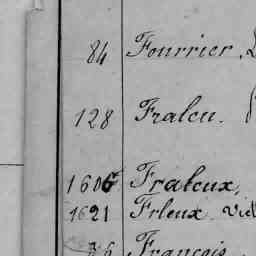 84 Fourrier,
128 Fraleu.
1606 Fraleux,
1621 Frleux
76 François